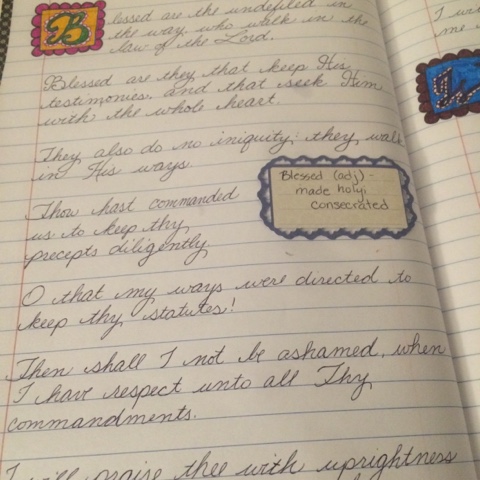 Blessed are the undefiled in
the way, who walk in the
law of the Lord.
Blessed are they that keep His
testimonies, and that seek Him
with the whole heart.
They also do no iniquity: they walk
in His ways.
Thou hast commanded
us to keep thy
precepts diligently.
Blessed (adj) -
made holy;
consecrated
O that my ways were directed to
keep thy statutes!
Then shall I not be ashamed, when
I have respect unto all Thy
commandments.
I will praise thee with uprightness
I
me
W